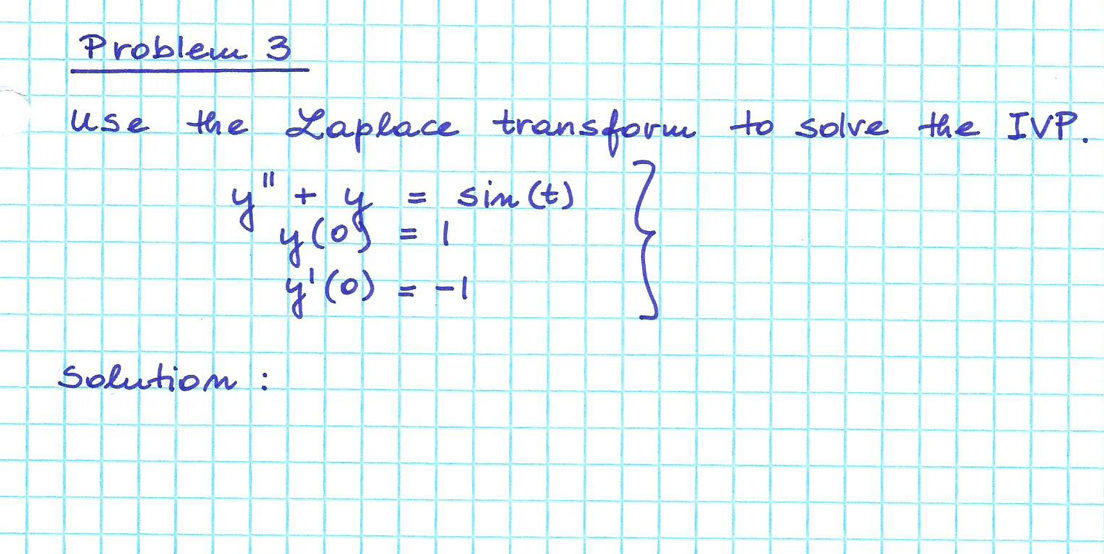 Problem 3
Use the Laplace transform to solve the IVP.
y" + y = sin(t)
y(0) = 1
y'(0) = -1
Solution :